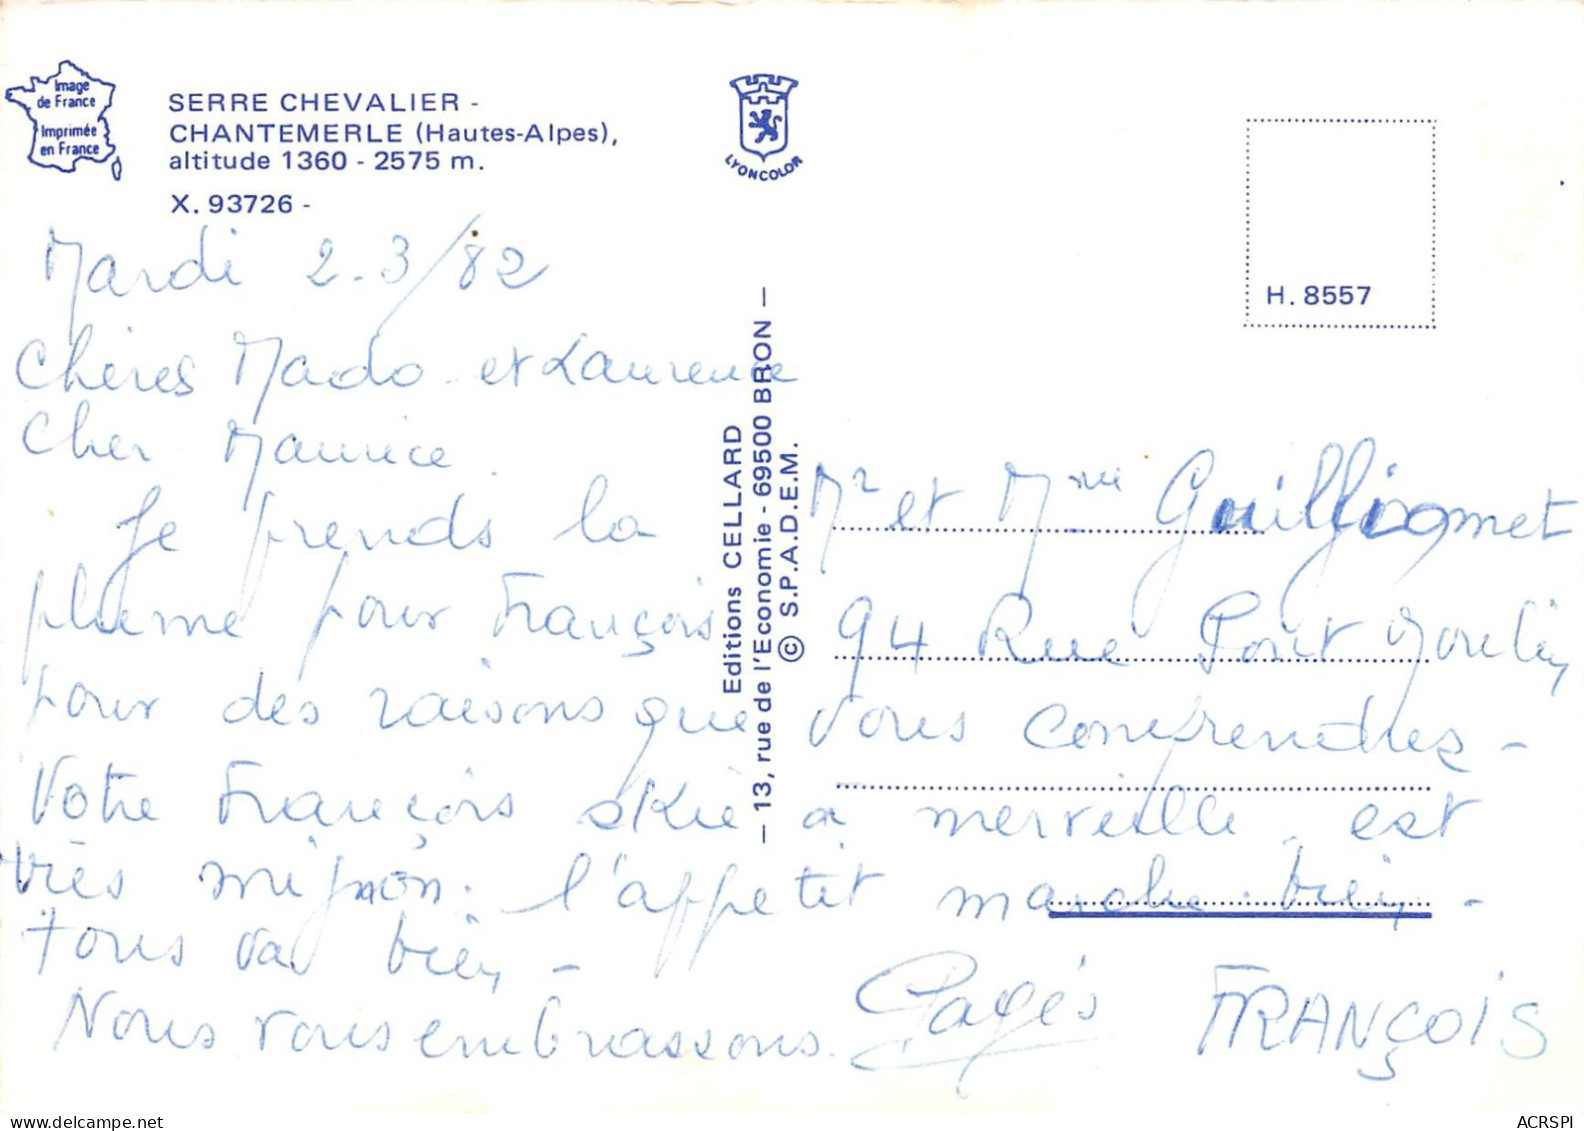 Image
de France
Imprimée
en France
SERRE CHEVALIER -
CHANTEMERLE (Hautes-Alpes),
altitude 1360 - 2575 m.
X. 93726 -
LYONCOLOR
H. 8557
Editions CELLARD
— 13, rue de l'Economie - 69500 BRON —
© S.P.A.D.E.M.
Mardi 2.3/82
Chères Mado et Laurence
Cher Maurice.
Je prends la
plume pour François
pour des raisons que vous comprendrez -
Votre François skie à merveille, est
très mignon. l'appetit marche bien -
Tous va bien -
Nous vous embrassons.
Pagès
FRANÇOIS
Mr et Mme
94 Rue Pont Moulin
ACRSPI